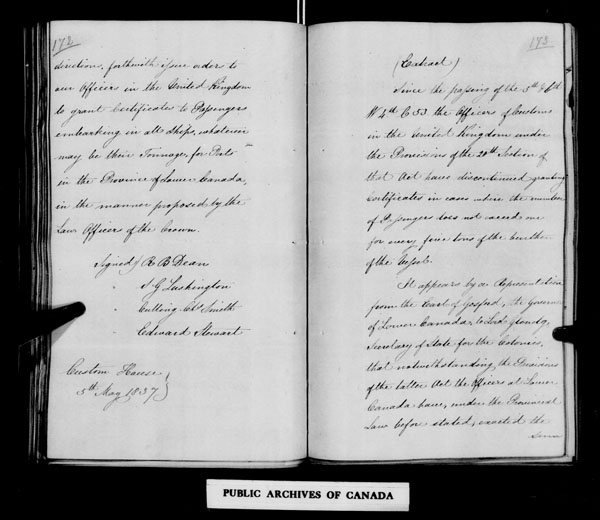 172
direction, forthwith issue orders to
our Officers in the United Kingdom
to grant Certificates to Passengers
embarking in all Ships, whatever
may be their Tonnage, for Ports
in the Province of Lower Canada,
in the manner proposed by the
Law Officers of the Crown.
Signed) R B Dean
" S G Lushington
" Culling Chs Smith
" Edward Stewart
Custom House }
5th May 1837 }
173
(Extract)
Since the passing of the 5th & 6th
W 4th C 53. the Officers of Customs
in the United Kingdom under
the Provisions of the 20th Section of
that Act have discontinued granting
Certificates in cases where the number
of Passengers does not exceed one
for every five tons of the burthen
of the Vessel.
It appears by a Representation
from the Earl of Gosford, the Governor
of Lower Canada, to Lord Glenelg,
Secretary of State for the Colonies,
that notwithstanding the Provisions
of the latter Act the Officers at Lower
Canada have, under the Provincial
Law before stated, exacted the
PUBLIC ARCHIVES OF CANADA